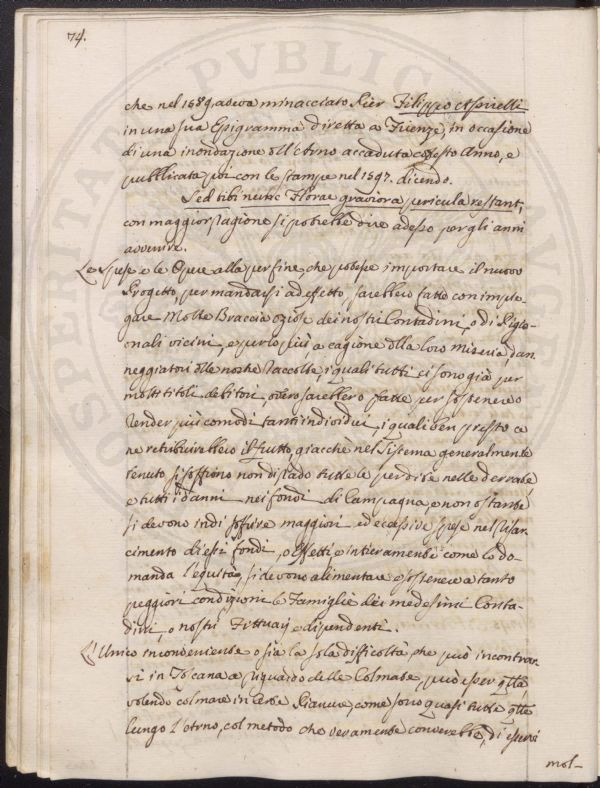 74.
che nel 1589. aveva minacciato Pier Filippo Assirelli
in una sua Epigramma diretta a Firenze, in occasione
di una inondazione dell'Arno accaduta in questo Anno, e
pubblicata poi con le stampe nel 1597. dicendo.
Sed tibi nunc Florae graviora pericula restant,
con maggior ragione si potrebbe dire adesso per gli anni
avvenire.
Le Spese e le Opere alla per fine, che potesse importare il nuovo
Progetto, per mandarsi ad effetto, sarebbero fatte con impie-
gare Molte Braccia oziose dei nostri Contadini, o di Pigio-
nali vicini, e per lo più, a cagione della loro Miseria, dan-
neggiatori delle nostre raccolte, i quali tutti ci sono già per
molti titoli debitori, overo sarebbero fatte per sostenere o
render più comodi tanti individui, i quali ben presto ce
ne retribuirebbero il frutto, giacchè nel Sistema generalmente
tenuto, si soffrono non di rado tutte le perdite nelle derrate,
e tutti i danni nei fondi di Campagna, e non ostante
si devono indi soffrire maggiori ed eccessive spese nel risar-
cimento di essi fondi, o Effetti e intieramente come lo do-
manda l'equità, si devono alimentare e sostenere a tanto
peggiori condizioni le Famiglie dei medesimi Conta-
dini, o nostri Fittuarj e dipendenti.
L'Unico inconveniente o sia la sola difficoltà che può incontrar-
si in Toscana a riguardo delle Colmate, può esser quella,
volendo colmare in certe Pianure, come sono quasi tutte quelle
lungo l'Arno, col metodo che veramente converrebbe, di esservi
mol-